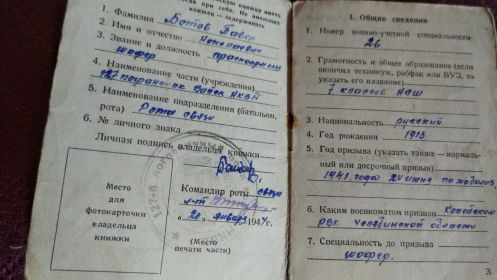 книжки — задерживать
1. Фамилия Ботов Павел
2. Имя и отчество
3. Звание и должность красноармеец
шофер
4. Наименование части (учреждения)
127 погран. п-к Войск НКВД
5. Наименование подразделения (батальон,
рота) Рота связи
6. № личного знака
Личная подпись владельца книжки
Место
для
фотокарточки
владельца
книжки
Командир роты связи
л-т
„20“ января 1944 г.
(Место
печати части)
I. Общие сведения
1. Номер военно-учетной специальности
26
2. Грамотность и общее образование (если
окончил техникум, рабфак или ВУЗ, то
указать его название)
7 классов НСШ
3. Национальность русский
4. Год рождения 1913
5. Год призыва (указать также — нормаль-
ный или досрочный призыв)
1941 года 24 июня по мобилиз.
6. Каким военкоматом призван Копейским
РВК Челябинской области
7. Специальность до призыва
шофер.